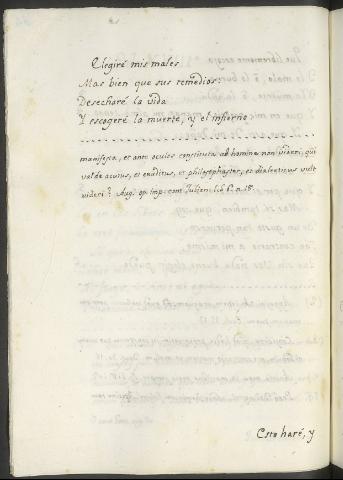 Elegiré mis males
Mas bien que sus remedios:
Desecharé la vida
Y escogeré la muerte, y el infierno;
manifesta, et ante oculos constituta ab homine non videri, qui
valde acutus, et eruditus, et philosophaster, et dialecticus vult
videri? Aug. op. imp. cont. Julien. lib. 6. n. 18.
Esto haré, y